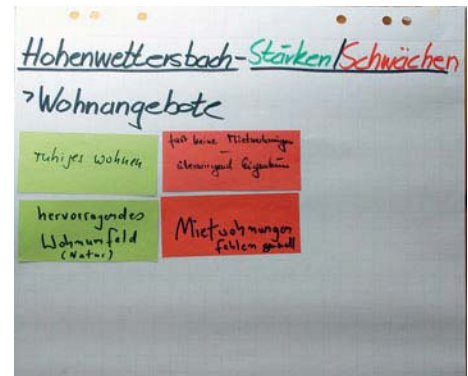 Hohenwettersbach-Stärken/Schwächen
>Wohnangebote
ruhiges Wohnen
fast keine Mietwohnungen
–
überwiegend Eigentum
hervorragendes
Wohnumfeld
(Natur)
Mietwohnungen
fehlen